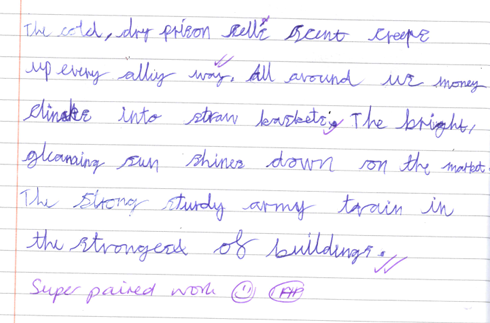 The cold, dry prison cells scent creeps
up every alliy way. All around us money
clinks into straw baskets. The bright,
gleaming sun shines down on the market.
The strong sturdy army train in
the strongest of buildings.
Super paired work